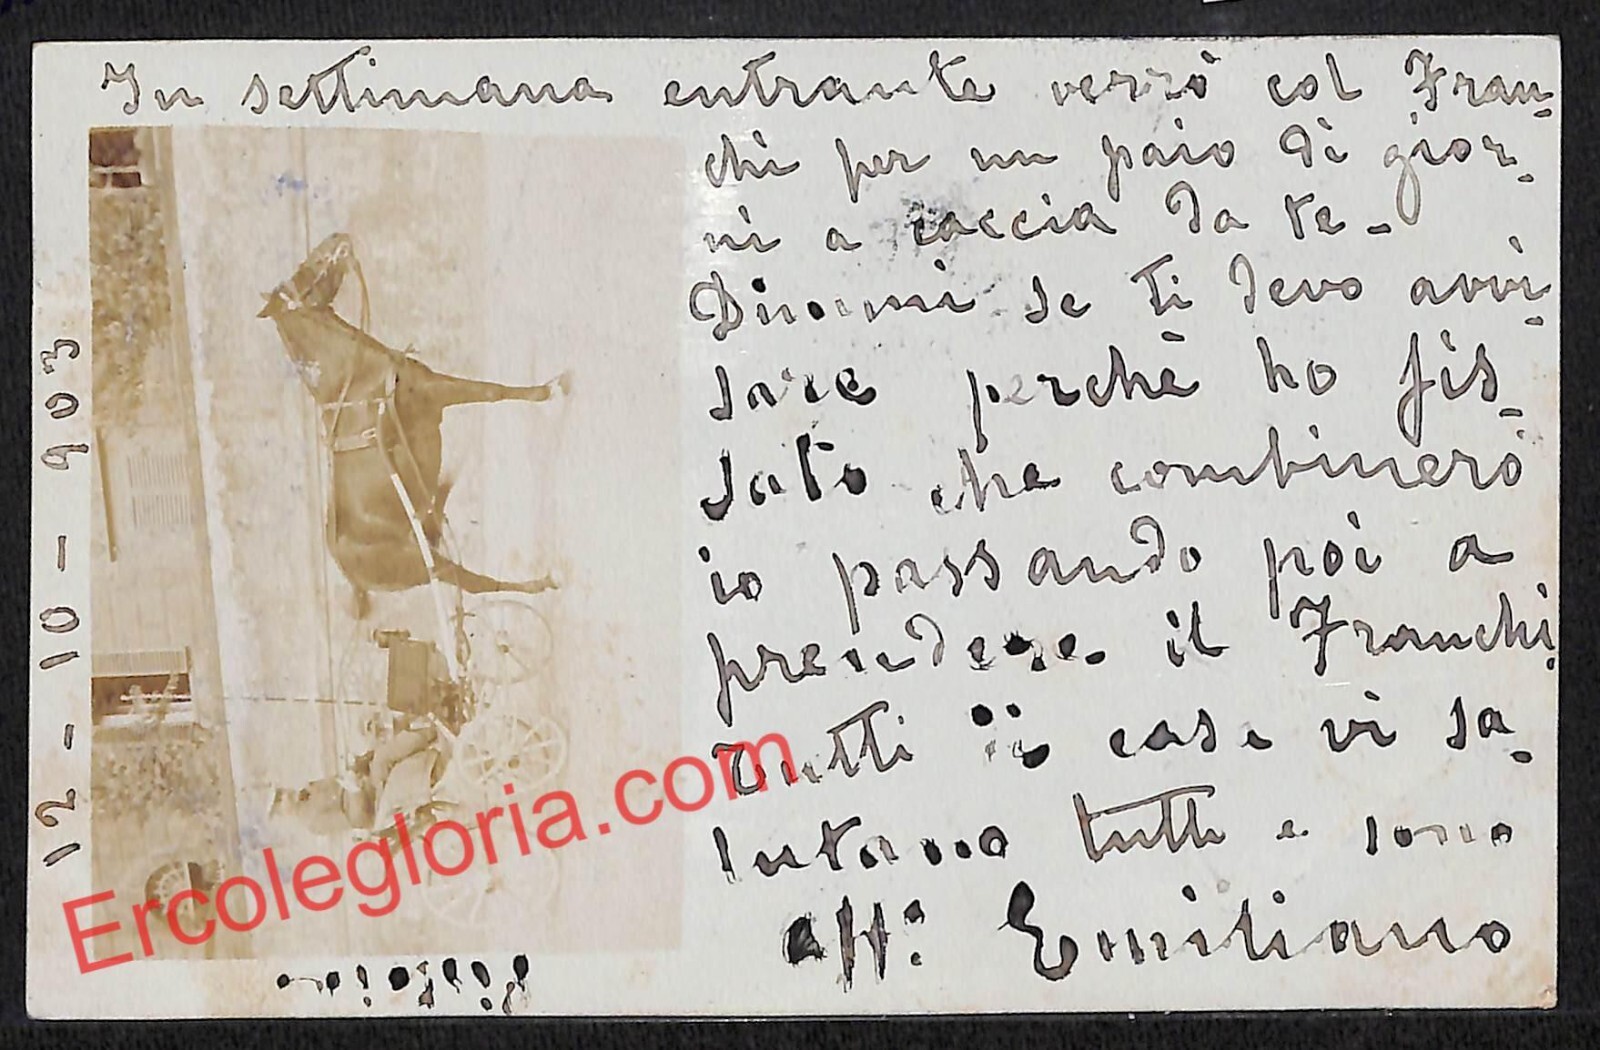 In settimana entrante verrò col Fran-
chi per un paio di gior-
ni a caccia da te -
Dimmi se ti devo avvi-
sare perchè ho fis-
sato che combinerò
io passando poi a
prendere il Franchi
Tutti di casa vi sa-
lutano tutti e sono
aff: Emiliano
12 - 10 - 903
Ercolegloria.com